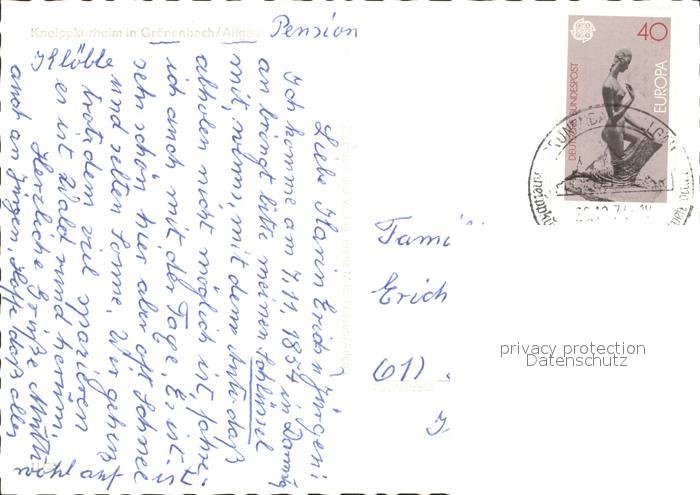 Kneippkurheim in Grönenbach/Allgäu
Pension
Klöble
Liebe Karin Erich u Jürgen!
Ich komme am 7.11. 1854 in Darmst.
an bringt bitte meinen Schlüssel
mit, wenns, mit dem Auto daß
abholen nicht möglich ist, fahre
ich auch mit der Taxe. Es ist
sehr schön hier aber oft Schnee
und selten Sonne. Wir gehen
trotzdem viel spazieren
es ist Wald rund herum.
Herzliche Grüße Mutti
auch an Jürgen. Hoffe daß alles
wohl auf
Fami
Erich
61)
40
DEUTSCHE BUNDESPOST
EUROPA
privacy protection
Datenschutz